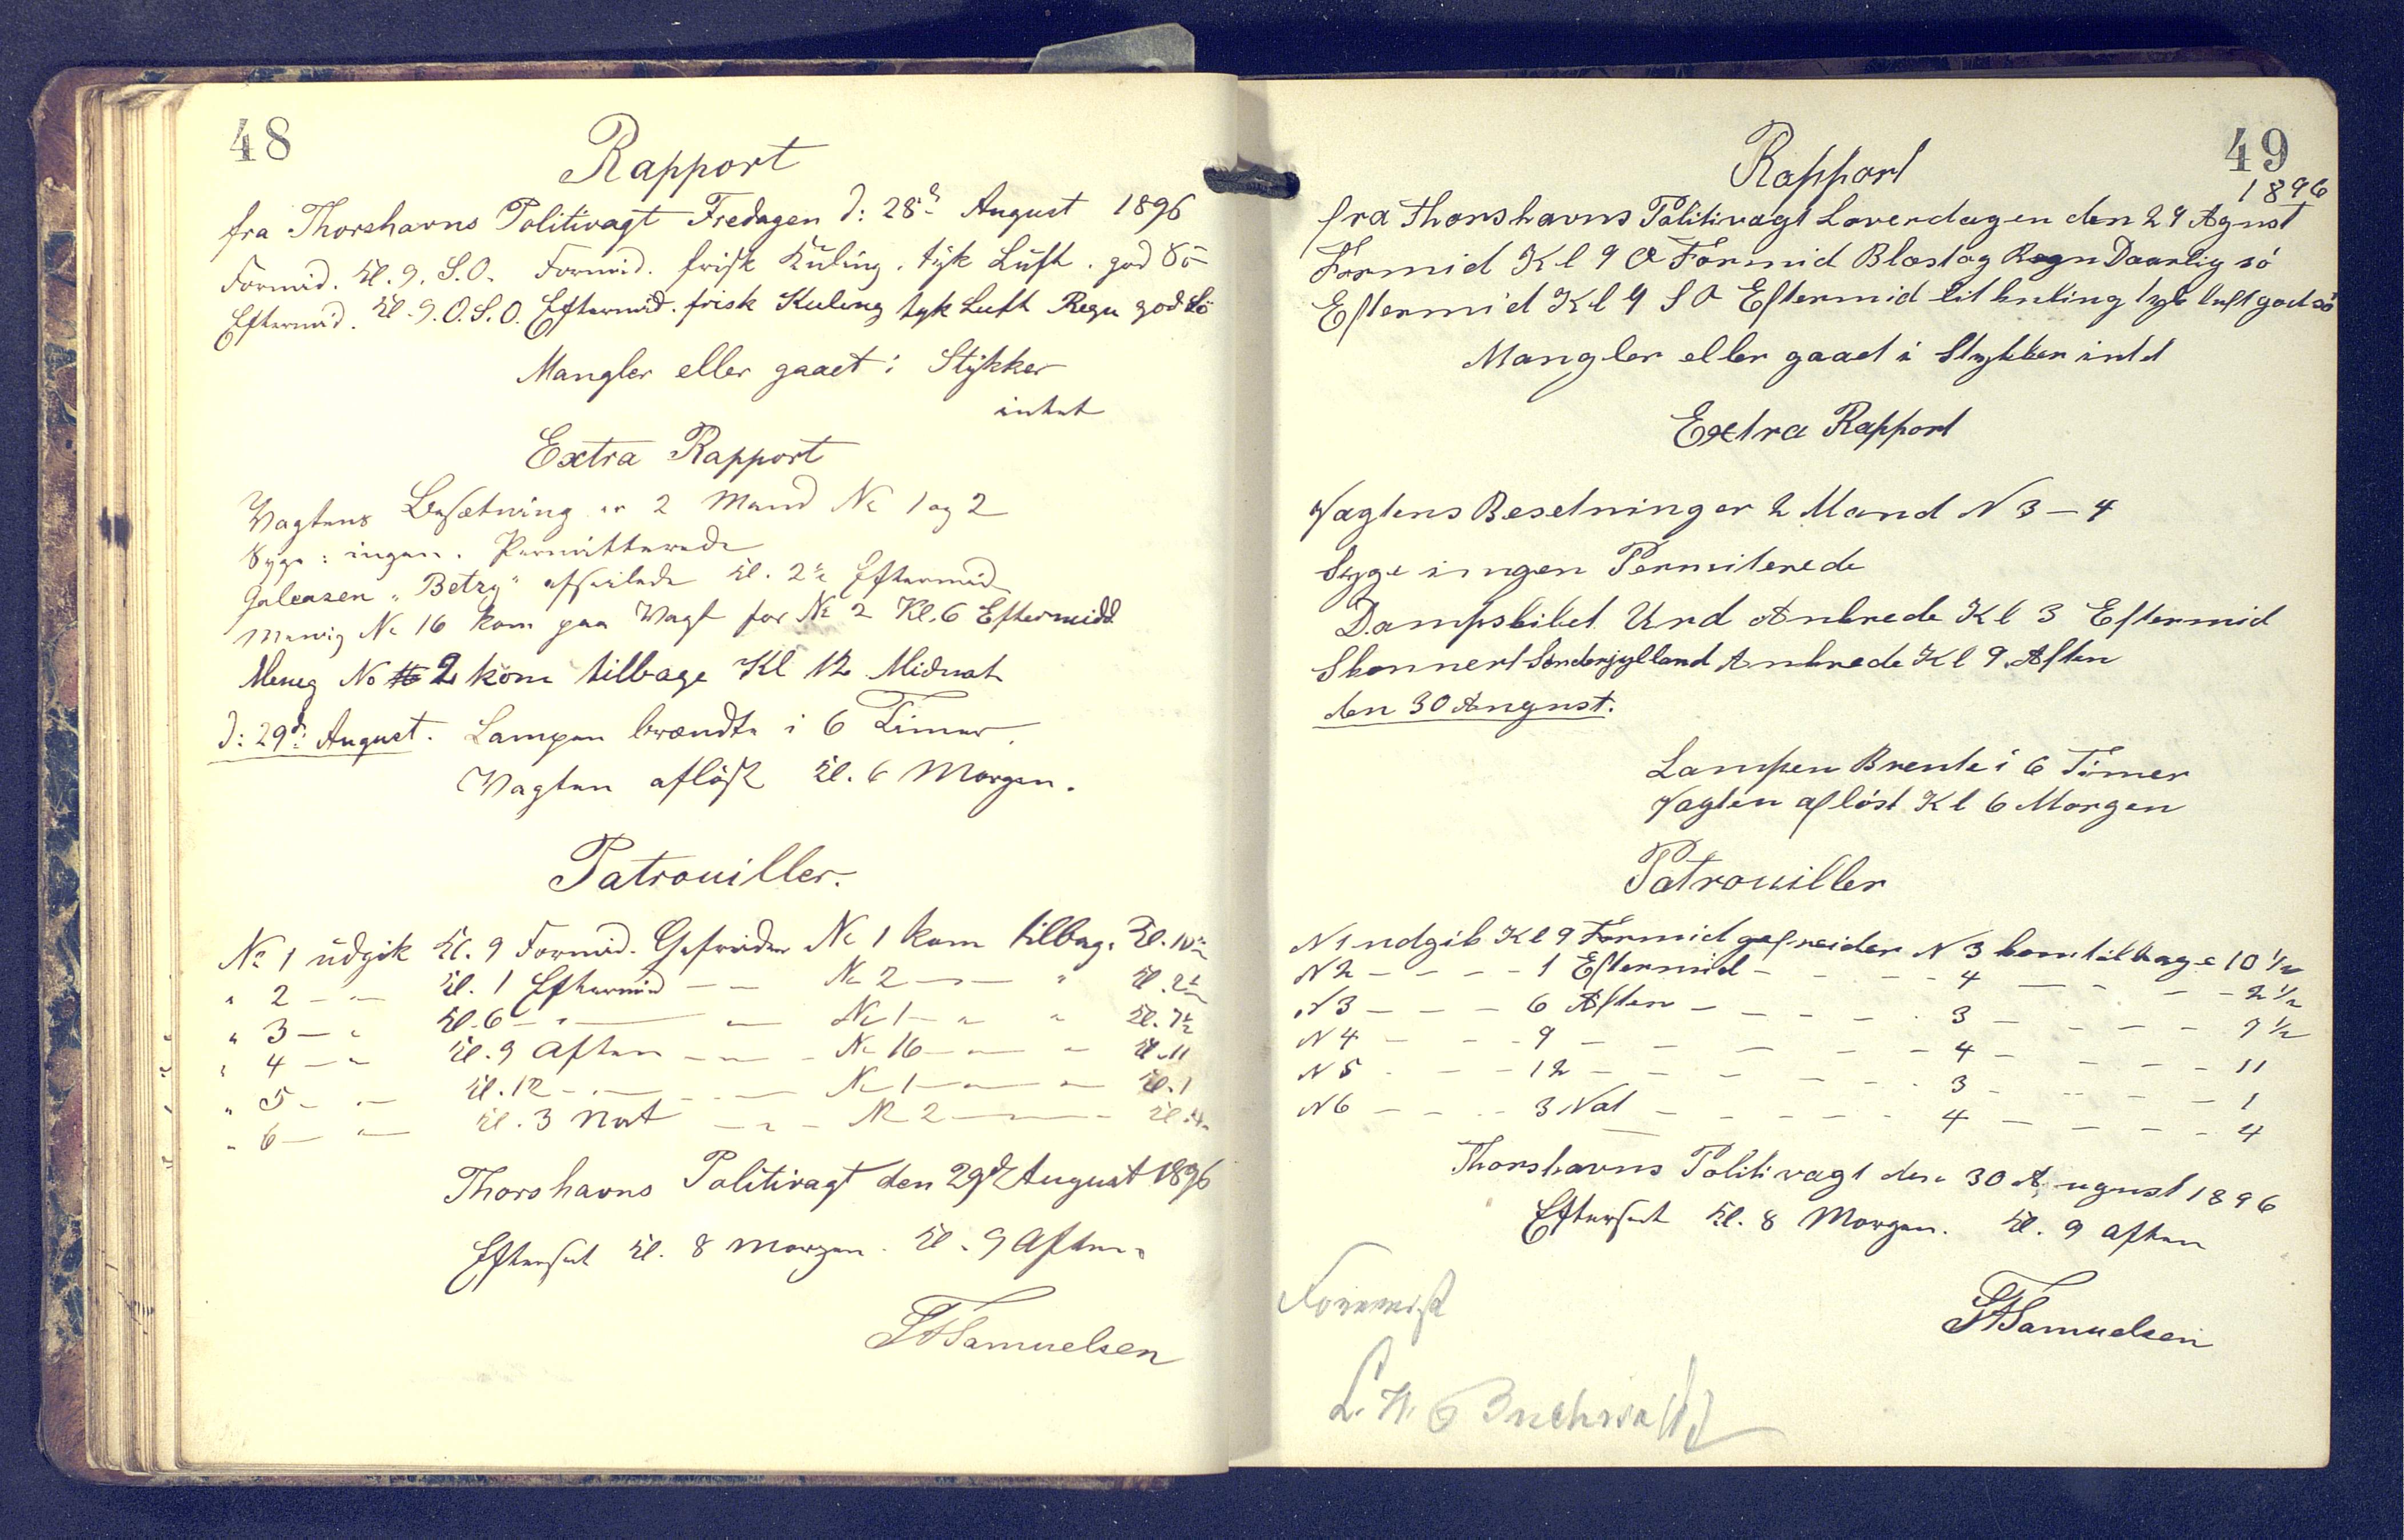 48
Rapport
fra Thorshavns Politivagt Fredagen d: 28d August 1896
Formid. Kl. 9. S.O. Formid. frisk Kuling. tyk Luft. god Sö
Eftermid. Kl. 9. O.S.O. Eftermid. frisk Kuling tyk Luft Regn god Sö
Mangler eller gaaet i Stykker
intet
Extra Rapport
Vagtens Besætning er 2 Mand No 1 og 2
Syge: ingen. Permitterede
Galeasen "Betzy" afseilede Kl. 2½ Eftermid
Menig No 16 kom paa Vagt for No 2 Kl. 6 Eftermidd
Menig No 2 kom tilbage Kl 12 Midnat
d: 29d: August. Lampen brændte i 6 Timer.
Vagten aflöst Kl. 6 Morgen.
Patrouiller.
No 1 udgik Kl. 9 Formid. Gefreider No 1 kom tilbage Kl. 10½
" 2 - " - Kl. 1 Eftermid - - No 2 - " - " Kl. 2½
" 3 - " Kl. 6 - " - - No 1 - " - " Kl. 7½
" 4 - " Kl. 9 Aften - " - No 16 - " - " Kl. 11
" 5 - " - Kl. 12 - " - - " - No 1 - " - " Kl. 1
" 6 - " - Kl. 3 Nat - " - No 2 - " - Kl. 4
Thorshavns Politivagt den 29d August 1896
Efterset Kl. 8 Morgen. Kl. 9 Aften.
Samuelsen
49
Rapport
1896
fra Thorshavns Politivagt Loverdagen den 29 Agust
Formid Kl 9 O Formid Blæst og Regn Daarlig só
Eftermid Kl 9 S O Eftermid lit kuling tyk luft god só
Mangler eller gaaet i Stykker intet
Extra Rapport
Vagtens Besetning er 2 Mand N 3 - 4
Syge ingen Permiterede
Dampskibet Urd Ankrede Kl 3 Eftermid
Skonnert Sönderjylland Ankrede Kl 9 Aften
den 30 August.
Lampen Brente i 6 Timer
Vagten aflöst Kl 6 Morgen
Patrouiller
N 1 udgik Kl 9 Formid gefreider N 3 kom tilbage 10 ½
N 2 - - - - 1 Eftermid - - - - 4 - - - - 2 ½
N 3 - - - 6 Aften - - - - - 3 - - - - 7 ½
N 4 - - - 9 - - - - - - 4 - - - - 11
N 5 - - - 12 - - - - - - 3 - - - - 1
N 6 - - - 3 Nat - - - - - 4 - - - - 4
Thorshavns Politivagt den 30 August 1896
Efterset Kl. 8 Morgen. Kl. 9 Aften
Samuelsen
Forevist
Buchwaldt